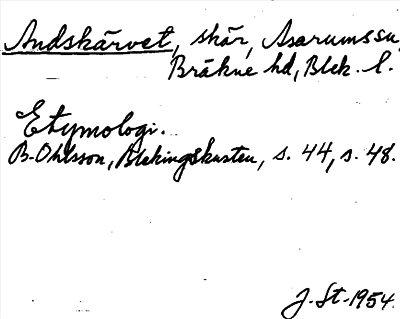 Andskärvet, skär, Asarums sn,
Bräkne hd, Blek. l.
Etymologi.
B. Ohlsson, Blekingskusten, s. 44, s. 48.
J. St. 1954.